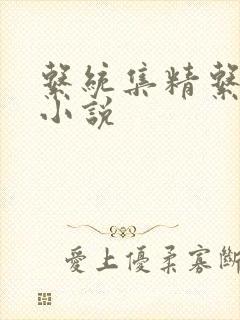 繫統集精繫
小說
愛上優柔寡斷